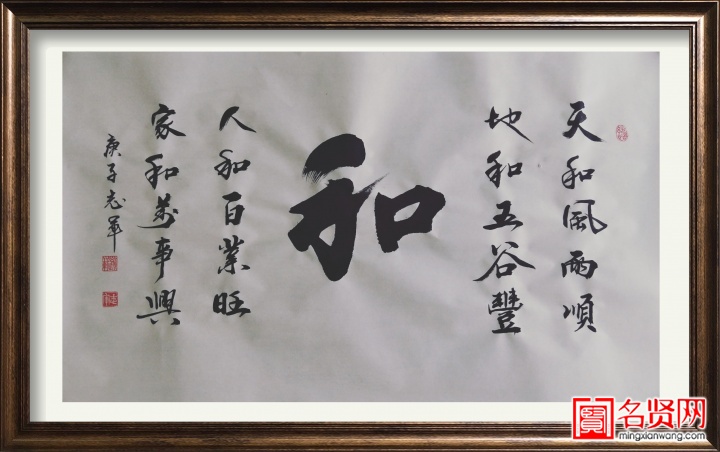 天和風雨順
地和五谷豐
和
人和百業旺
家和萬事興
庚子志軍
名贤网
mingxianwang.com